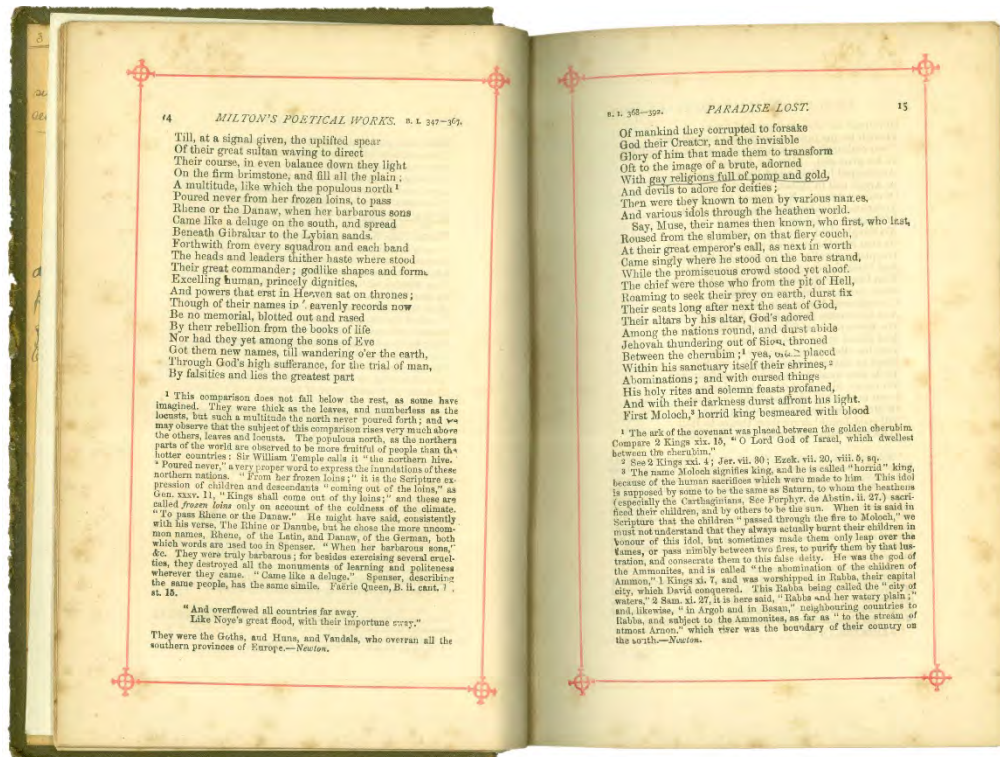 14 MILTON'S POETICAL WORKS. B. I. 347–367.
Till, at a signal given, the uplifted spear
Of their great sultan waving to direct
Their course, in even balance down they light
On the firm brimstone, and fill all the plain;
A multitude, like which the populous north¹
Poured never from her frozen loins, to pass
Rhene or the Danaw, when her barbarous sons
Came like a deluge on the south, and spread
Beneath Gibraltar to the Lybian sands.
Forthwith from every squadron and each band
The heads and leaders thither haste where stood
Their great commander; godlike shapes and forms
Excelling human, princely dignities,
And powers that erst in Heaven sat on thrones;
Though of their names in heavenly records now
Be no memorial, blotted out and rased
By their rebellion from the books of life
Nor had they yet among the sons of Eve
Got them new names, till wandering o'er the earth,
Through God's high sufferance, for the trial of man,
By falsities and lies the greatest part
¹ This comparison does not fall below the rest, as some have
imagined. They were thick as the leaves, and numberless as the
locusts, but such a multitude the north never poured forth; and we
may observe that the subject of this comparison rises very much above
the others, leaves and locusts. The populous north, as the northern
parts of the world are observed to be more fruitful of people than the
hotter countries; Sir William Temple calls it "the northern hive.
"Poured never," a very proper word to express the inundations of these
northern nations. "From her frozen loins;" it is the Scripture ex-
pression of children and descendants "coming out of the loins," as
Gen. xxxv. 11, "Kings shall come out of thy loins;" and these are
called frozen loins only on account of the coldness of the climate.
"To pass Rhene or the Danaw." He might have said, consistently
with his verse, The Rhine or Danube, but he chose the more uncom-
mon names, Rhene, of the Latin, and Danaw, of the German, both
which words are used too in Spenser. "When her barbarous sons,"
&c. They were truly barbarous; for besides exercising several cruel-
ties, they destroyed all the monuments of learning and politeness
wherever they came. "Came like a deluge." Spenser, describing
the same people, has the same simile. Faërie Queen, B. ii. cant.
st. 15.
"And overflowed all countries far away
Like Noye's great flood, with their importune sway."
They were the Goths, and Huns, and Vandals, who overran all the
southern provinces of Europe.—Newton.
B. I. 368–392. PARADISE LOST. 15
Of mankind they corrupted to forsake
God their Creator, and the invisible
Glory of him that made them to transform
Oft to the image of a brute, adorned
With gay religions full of pomp and gold,
And devils to adore for deities;
Then were they known to men by various names,
And various idols through the heathen world.
Say, Muse, their names then known, who first, who last,
Roused from the slumber, on that fiery couch,
At their great emperor's call, as next in worth
Came singly where he stood on the bare strand,
While the promiscuous crowd stood yet aloof.
The chief were those who from the pit of Hell,
Roaming to seek their prey on earth, durst fix
Their seats long after next the seat of God,
Their altars by his altar, God's adored
Among the nations round, and durst abide
Jehovah thundering out of Sion, throned
Between the cherubim;¹ yea, placed
Within his sanctuary itself their shrines,²
Abominations; and with cursed things
His holy rites and solemn feasts profaned,
And with their darkness durst affront his light.
First Moloch,³ horrid king besmeared with blood
¹ The ark of the covenant was placed between the golden cherubim
Compare 2 Kings xix. 15, "O Lord God of Israel, which dwellest
between the cherubim."
² See 2 Kings xxi. 4; Jer. vii. 30; Ezek. vii. 20, viii. 5, sq.
³ The name Moloch signifies king, and he is called "horrid" king,
because of the human sacrifices which were made to him This idol
is supposed by some to be the same as Saturn, to whom the heathens
(especially the Carthaginians, See Porphyr. de Abstin. ii. 27.) sacri-
ficed their children, and by others to be the sun. When it is said in
Scripture that the children "passed through the fire to Moloch," we
must not understand that they always actually burnt their children in
honour of this idol, but sometimes made them only leap over the
flames, or pass nimbly between two fires, to purify them by that lus-
tration, and consecrate them to this false deity. He was the god of
the Ammonites, and is called "the abomination of the children of
Ammon," 1 Kings xi. 7, and was worshipped in Rabba, their capital
city, which David conquered. This Rabba being called the "city of
waters," 2 Sam. xi. 27, it is here said, "Rabba and her watery plain;"
and, likewise, "in Argob and in Basan," neighbouring countries to
Rabba, and subject to the Ammonites, as far as "to the stream of
utmost Arnon," which river was the boundary of their country on
the south.—Newton.